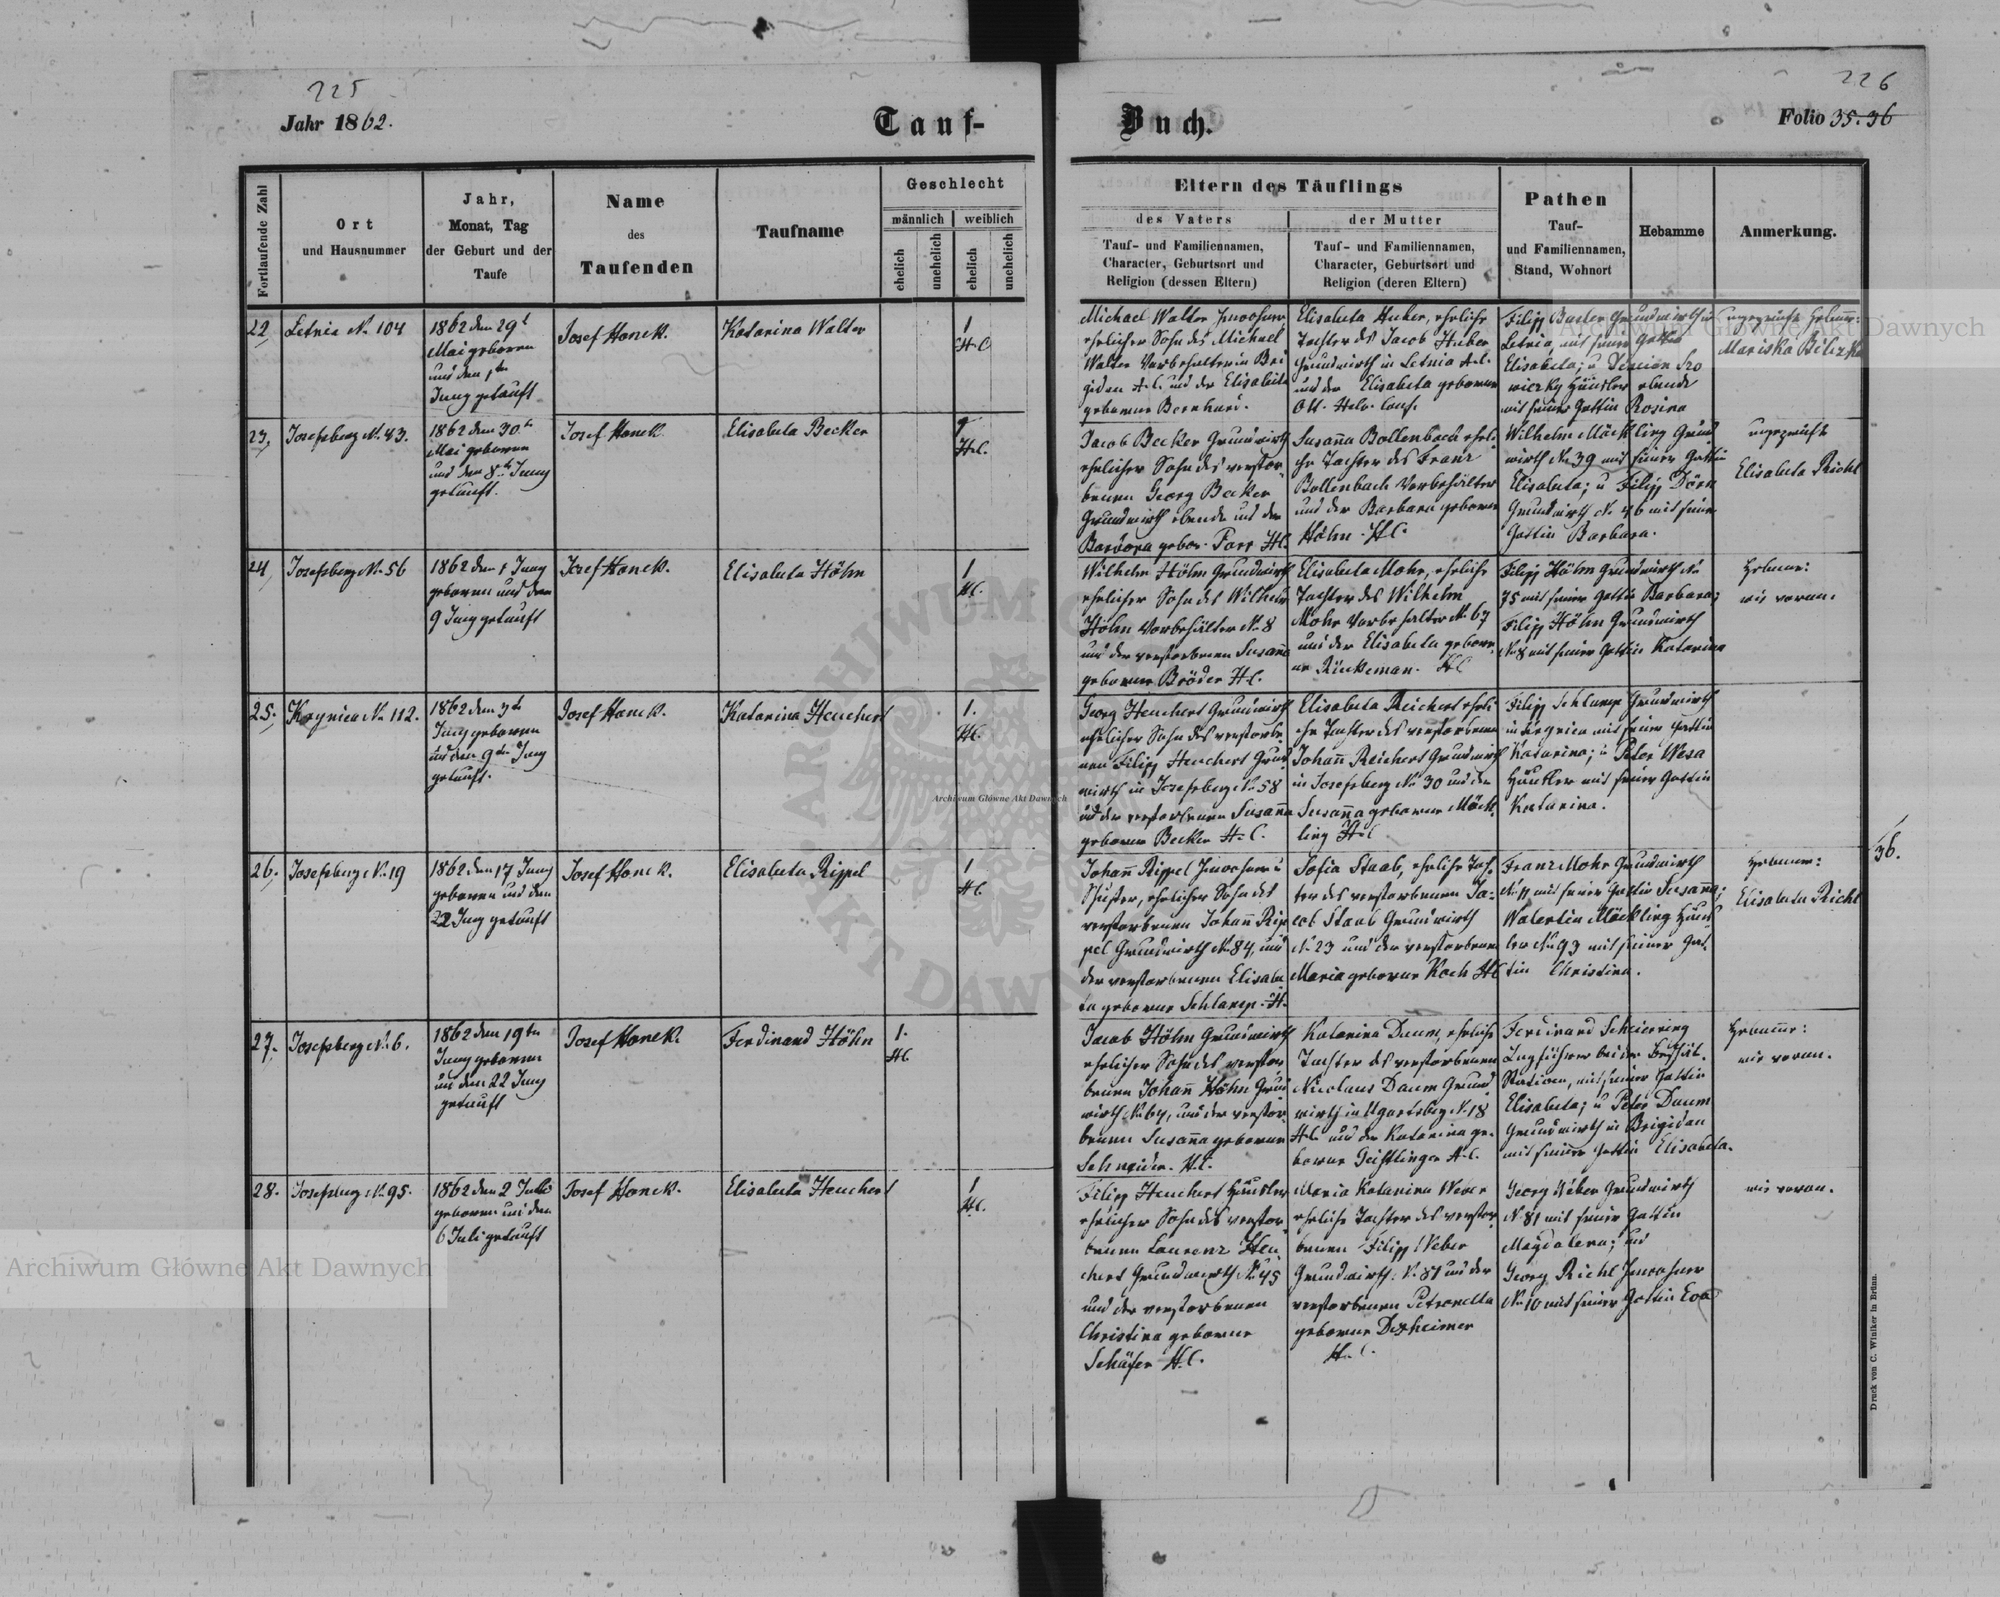 225
Jahr 1862.
Tauf-
Fortlaufende Zahl
Ort
und Hausnummer
Jahr,
Monat, Tag
der Geburt und der
Taufe
Name
des
Taufenden
Taufname
Geschlecht
männlich
weiblich
ehelich
unehelich
ehelich
unehelich
22, Letnia No 104
1862 den 29t
Mai geboren
und den 1ten
Juny getauft
Josef Hanek.
Katarina Walter
1
H.C
23, Josefsberg No 43.
1862 den 30t
Mai geboren
und den 8ten Juny
getauft.
Josef Hanek
Elisabeta Becker
1
H.C.
24, Josefsberg No 56
1862 den 1 Juny
geboren und den
9 Juny getauft
Josef Hanek.
Elisabeta Höhn
1
H.C.
25. Krynica No 112.
1862 den 3ten
Juny geboren
und den 9ten Juny
getauft.
Josef Hanek.
Katarina Heuchert
1.
H.C.
26. Josefsberg No 19
1862 den 17 Juny
geboren und den
22 Juny getauft
Josef Hanek.
Elisabeta Rippel
1
H.C
27. Josefsberg No 6.
1862 den 19ten
Juny geboren
und den 22 Juny
getauft
Josef Hanek.
Ferdinand Höhn
1.
H.C
28. Josefsberg No 95.
1862 den 2 Juli
geboren und den
6 Juli getauft
Josef Hanek.
Elisabeta Heuchert
1
H.C.
226
Buch.
Folio 35. 36
Eltern des Täuflings
des Vaters
Tauf- und Familiennamen,
Character, Geburtsort und
Religion (dessen Eltern)
der Mutter
Tauf- und Familiennamen,
Character, Geburtsort und
Religion (deren Eltern)
Pathen
Tauf-
und Familiennamen,
Stand, Wohnort
Hebamme
Anmerkung.
Michael Walter Inwohner
ehelicher Sohn des Michael
Walter Vorbehalter in Bri
gidau H.C. und der Elisabeta
geborene Bernhard.
Elisabeta Huber, eheliche
Tochter des Jacob Huber
Grundwirth in Letnia H.C.
und der Elisabeta geborene
Ott. Helv. Conf.
Filipp Grundwirth in
Letnia mit seiner Gattin
Elisabeta; u
Häusler ebenda
mit seiner Gattin Rosina
ungeprüfte Hebamme:
Mariska
Jacob Becker Grundwirth
ehelicher Sohn des verstor
benen Georg Becker
Grundwirth ebenda und der
Barbara gebor. Parr H.C.
Susanna Bollenbach eheli
che Tochter des Franz
Bollenbach Vorbehälter
und der Barbara geborene
Höhn. H.C.
Wilhelm Mäckling Grund
wirth No 39 mit seiner Gattin
Elisabeta; u Filipp Dörn
Grundwirth No 46 mit seiner
Gattin Barbara.
ungeprüfte
Elisabeta Richl
Wilhelm Höhn Grundwirth
ehelicher Sohn des Wilhelm
Höhn Vorbehälter No 8
und der verstorbenen Susanna
geborene Bröder H.C.
Elisabeta Mohr, eheliche
Tochter des Wilhelm
Mohr Vorbehalter No 67
und der Elisabeta gebore
ne Rückeman. H.C
Filipp Höhn Grundwirth No
75 mit seiner Gattin Barbara;
Filipp Höhn Grundwirth
No 8 mit seiner Gattin Katarina
Hebame:
wie voran.
Georg Heuchert Grundwirth
ehelicher Sohn des verstorbe
nen Filipp Heuchert Grund
wirth in Josefsberg No 58
und der verstorbenen Susanna
geborene Becker H.C.
Elisabeta Reichert eheli
che Tochter des verstorbenen
Johann Reichert Grundwirth
in Josefsberg No 30 und der
Susanna geborene Mäck
ling H.C
Filipp Schlamp Grundwirth
in Krynica mit seiner Gattin
Katarina; u Peter Wesa
Häusler mit seiner Gattin
Katarina.
Johann Rippel Inwohner u
Schuster, ehelicher Sohn des
verstorbenen Johann Rip
pel Grundwirth No 84, und
der verstorbenen Elisabe
ta geborene Schlamp. H.
Sofia Staab, eheliche Toch
ter des verstorbenen Ja-
cob Staab Grundwirth
No 23 und der verstorbenen
Maria geborene Koch H.C
Franz Mohr Grundwirth
No 11 mit seiner Gattin Susanna;
Walentin Mäckling Häus
ler No 93 mit seiner Gat
tin Christina.
Hebamme:
Elisabeta Richl
36.
Jacob Höhn Grundwirth
ehelicher Sohn des verstor
benen Johann Höhn Grund
wirth No 64, und der verstor
benen Susanna geborene
Schneider. H.C.
Katarina Daum, eheliche
Tochter des verstorbenen
Nicolaus Daum Grund
wirth in Ugartsberg No 18
H.C. und der Katarina ge-
borene Geislinger H.C.
Ferdinand Scheierring
Zugführer bei der Beschäl
Station, mit seiner Gattin
Elisabeta; u Peter Daum
Grundwirth in Brigidau
mit seiner Gattin Elisabeta.
Hebamme:
wie voran.
Filipp Heuchert Häusler
ehelicher Sohn des verstor
benen Laurenz Heu
chert Grundwirth No 45
und der verstorbenen
Christina geborene
Schäfer H.C.
Maria Katarina Weber
eheliche Tochter des verstor
benen Filipp Weber
Grundwirth No 81 und der
verstorbenen Petronella
geborene Dexheimer
H.C.
Georg Weber Grundwirth
No 81 mit seiner Gattin
Magdalena; und
Georg Richl Inwohner
No 10 mit seiner Gattin Eva
wie voran.
Druck von C. Winiker in Brünn.
Archiwum Główne Akt Dawnych
Archiwum Główne Akt Dawnych
Archiwum Główne Akt Dawnych
ARCHIWUM
AKT DAWN